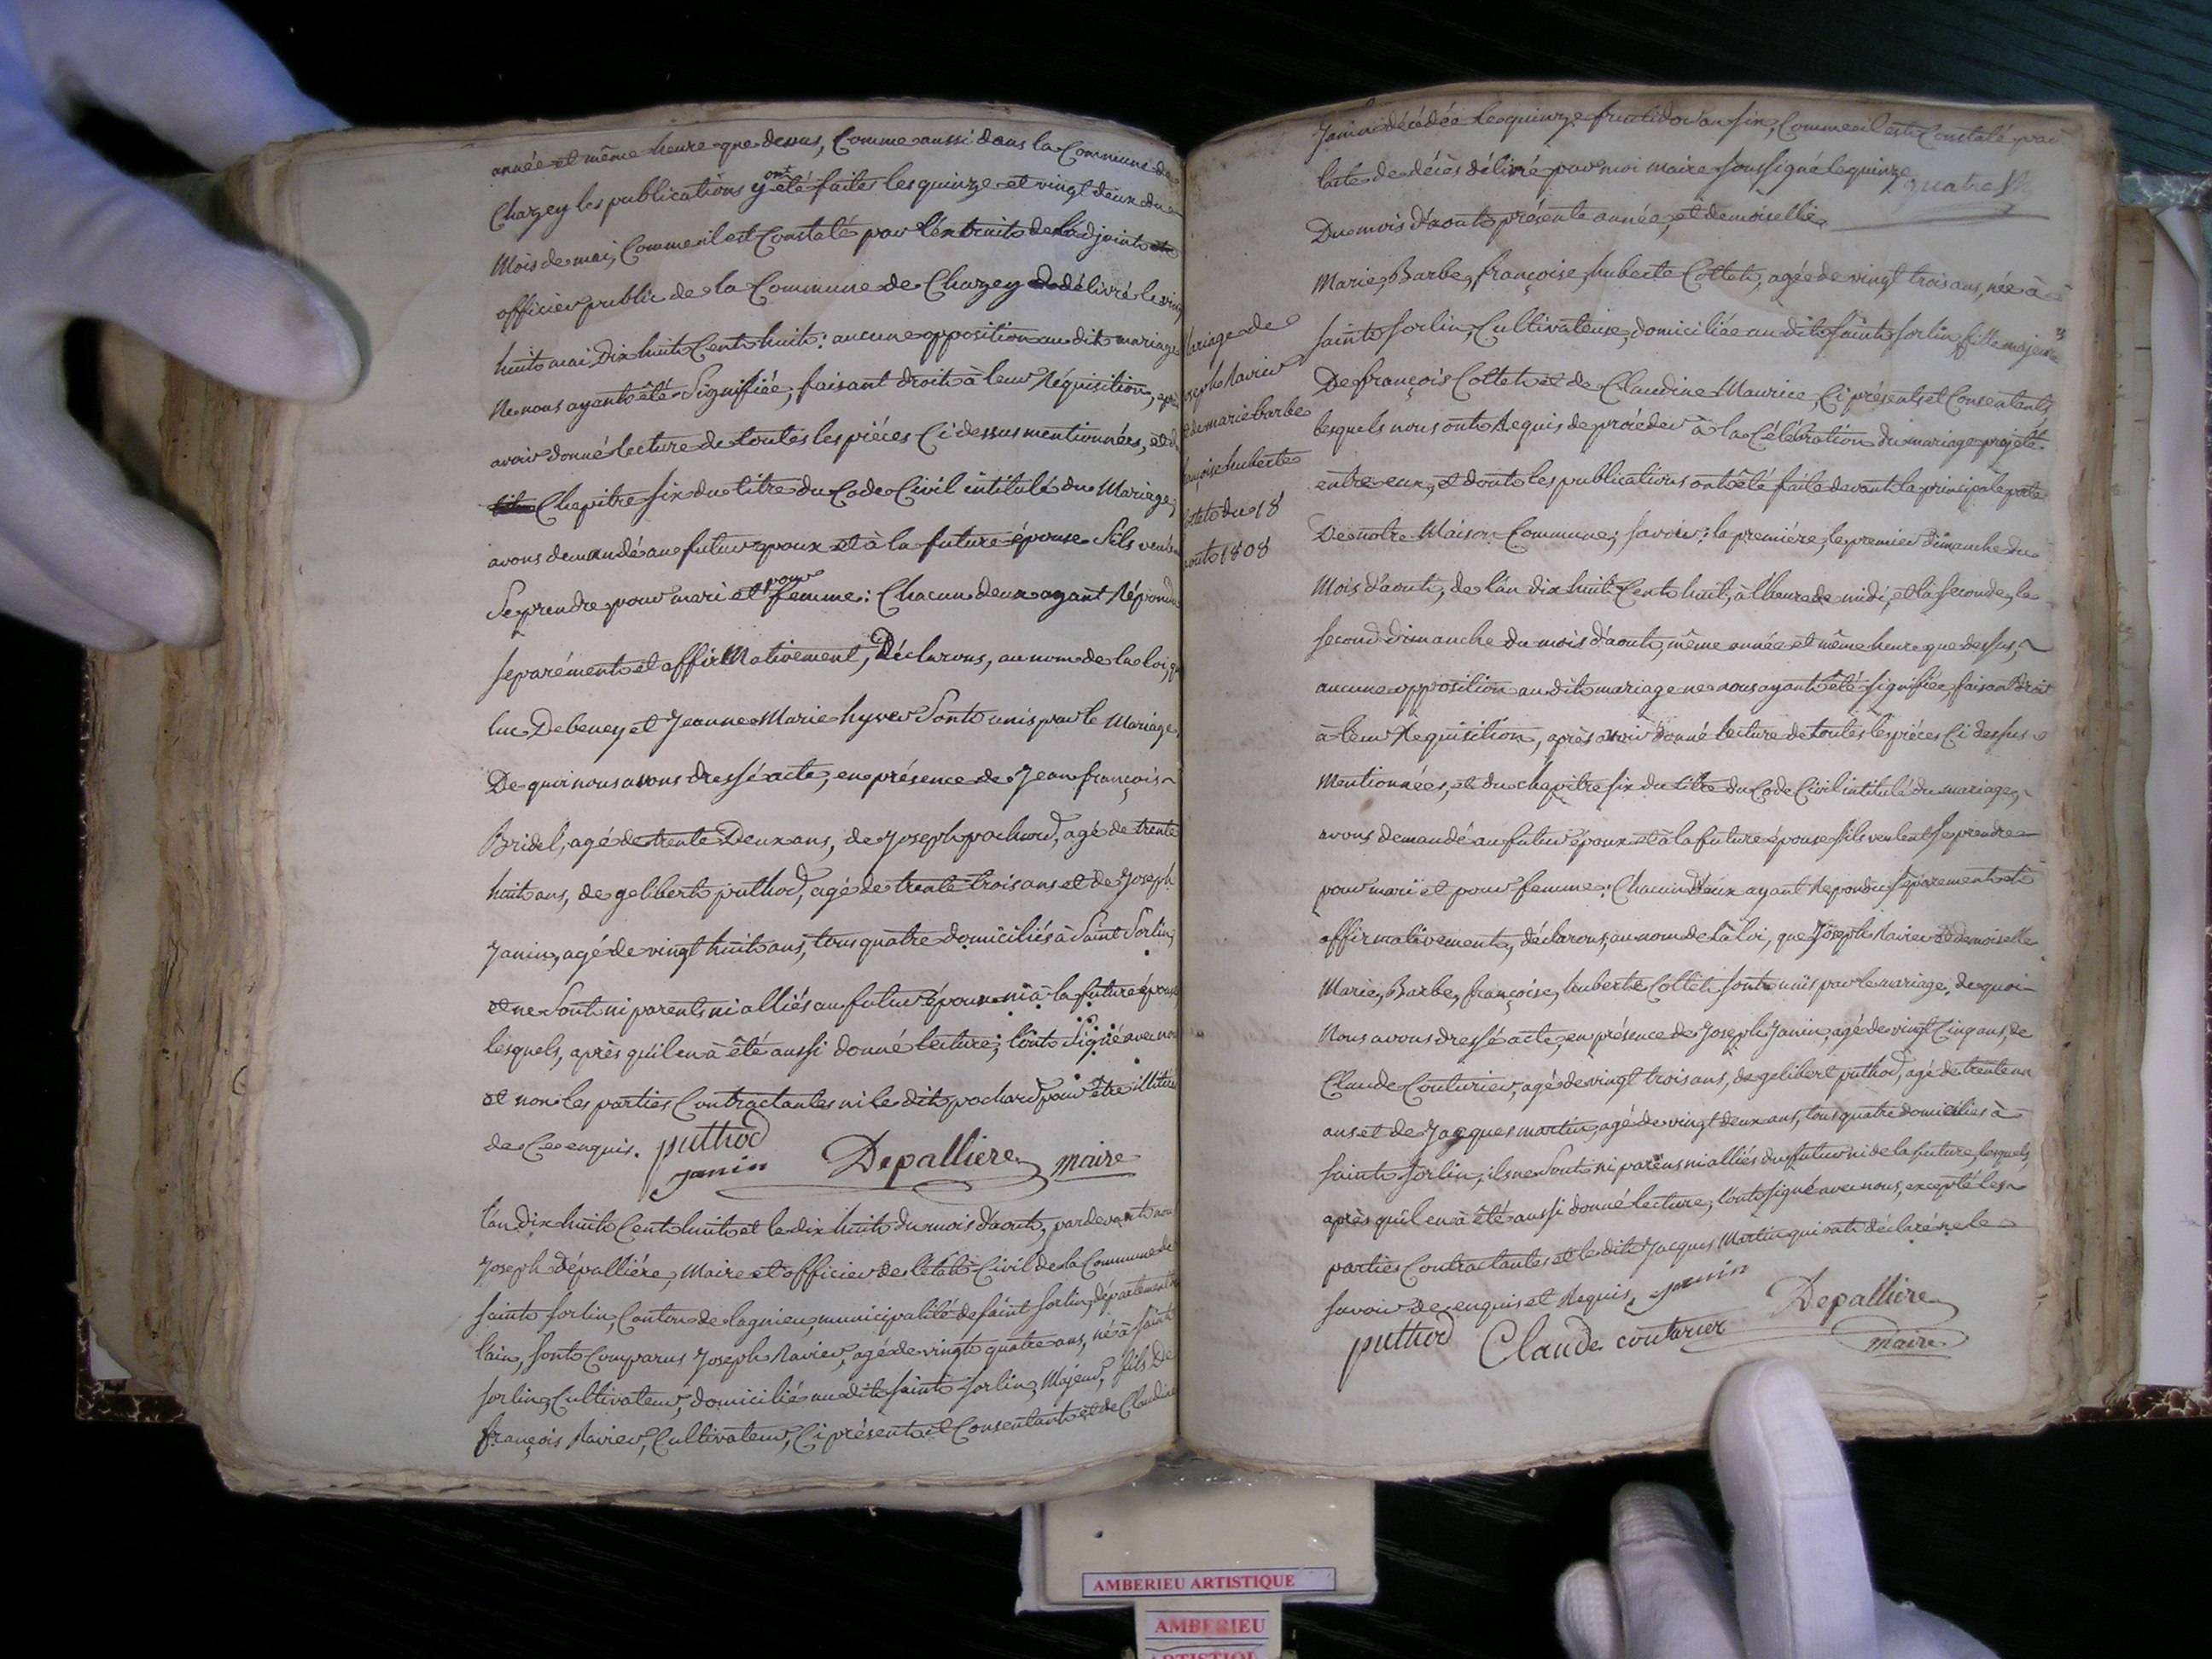 année et même heure que dessus, Comme aussi dans la Commune de
Chazey les publications y ont été faites les quinze et vingt deux du
Mois de mai, Comme il est Constaté par l'extrait de l'adjoint et
officier public de la Commune de Chazey délivré le vingt
huit mai Dix huit Cent huit: aucune opposition au dit mariage
Ne nous ayant été Signifiée; faisant droit à leur Réquisition, après
avoir donné lecture de toutes les pièces Ci dessus mentionnées, et du
Chapitre six du titre du Code Civil intitulé du Mariage;
avons demandé au futur époux et à la future épouse S'ils veulent
Se prendre pour mari et pour femme: Chacun deux ayant Répondu
séparément et affirmativement, Déclarons, au nom de la loi, que
luc Debeney et Jeanne Marie hyver Sont unis par le Mariage.
De quoi nous avons dressé acte, en présence de Jean françois
Bridel, agé de trente Deux ans, de Joseph pochard, agé de trente
huit ans, de gelibert puthod, agé de trente trois ans et de Joseph
Janin, agé de vingt huit ans, tous quatre domiciliés à Saint Sorlin,
et ne Sont ni parents ni alliés au futur époux ni à la future épouse
lesquels, après qu'il en à été aussi donné lecture; l'ont Signé avec nous
et non les parties Contractantes ni le dit pochard pour être illitéré
de Ce enquis. puthod
Janin Depalliere maire
l'an dix huit Cent huit et le dix huit du mois d'aout, pardevant nous
Joseph dépallière, Maire et officier de l'état Civil de la Commune de
saint sorlin, Canton de lagnieu, municipalité de saint sorlin, département de
l'ain, sont Comparus Joseph Ravier, agé de vingt quatre ans, né à saint
sorlin, Cultivateur, domicilié au dit saint sorlin, Majeur, fils De
françois Ravier, Cultivateur, Ci présent et Consentant et de Claudine
Mariage de
Joseph Ravier
et de marie barbe
françoise huberte
Cottet du 18
aout 1808
Janin décédée le quinze fructidor an six, Comme il est Constaté par
l'acte de décès délivré par moi maire soussigné le quinze
quatre
Du mois d'aout présente année, et demoiselle
Marie, Barbe, françoise, huberte Cottet, agée de vingt trois ans, née à
saint sorlin, Cultivateuse, domiciliée au dit saint sorlin, fille majeure
De françois Cottet et de Claudine Maurice, Ci présents et Consentants,
lesquels nous ont Requis de procéder à la Célébration du mariage projeté
entre eux, et dont les publications ont été faite devant la principale porte
De notre Maison Commune; savoir: la première, le premier dimanche du
Mois d'aout, de l'an dix huit Cent huit, à l'heure de midi, et la seconde, le
second dimanche du mois d'aout, même année et même heure que dessus,
aucune opposition au dit mariage ne nous ayant été signifiée, faisant droit
à leur Requisition, après avoir donné lecture de toutes les pièces Ci dessus
Mentionnées, et du chapitre six du titre du Code Civil intitulé du mariage,
avons demandé au futur époux et à la future épouse s'ils veulent se prendre
pour mari et pour femme: Chacun d'eux ayant Repondu séparement et
affirmativement, déclarons, au nom de la loi, que Joseph Ravier et demoiselle
Marie, Barbe, françoise, huberte Cottet sont unis par le mariage. de quoi
Nous avons dressé acte, en présence de Joseph Janin, agé de vingt Cinq ans, de
Claude Couturier, agé de vingt trois ans, de gelibert puthod, agé de trente un
ans et de Jacques martin, agé de vingt deux ans, tous quatre domiciliés à
saint sorlin, ils ne Sont ni parens ni alliés du futur ni de la future, lesquels,
après qu'il en à été aussi donné lecture, l'ont signé avec nous, excepté les
parties Contractantes et le dit Jacques Martin qui ont déclaré ne le
savoir de ce enquis et Requis, Janin
puthod Claude couturier Depalliere
maire
AMBERIEU ARTISTIQUE
AMBERIEU
ARTISTIQUE